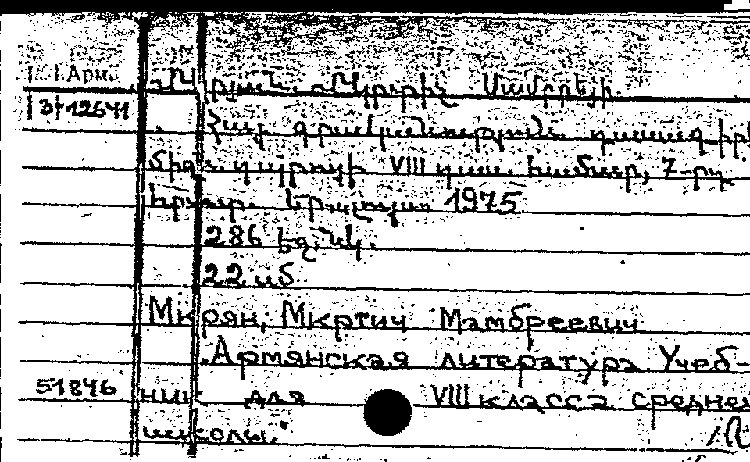 Арм.
3/12641
Մկրյան, Մկրտիչ Մամբրեյի
Հայ գրականություն. դասագիրք
միջն. դպրոցի VIII դաս. համար, 7-րդ
հրատ. Երևան 1975
286 էջ, նկ.
22 սմ
Мкрян, Мкртич Мамбреевич
Армянская литература Учеб-
51846 ник для VIII класса средней
школы."